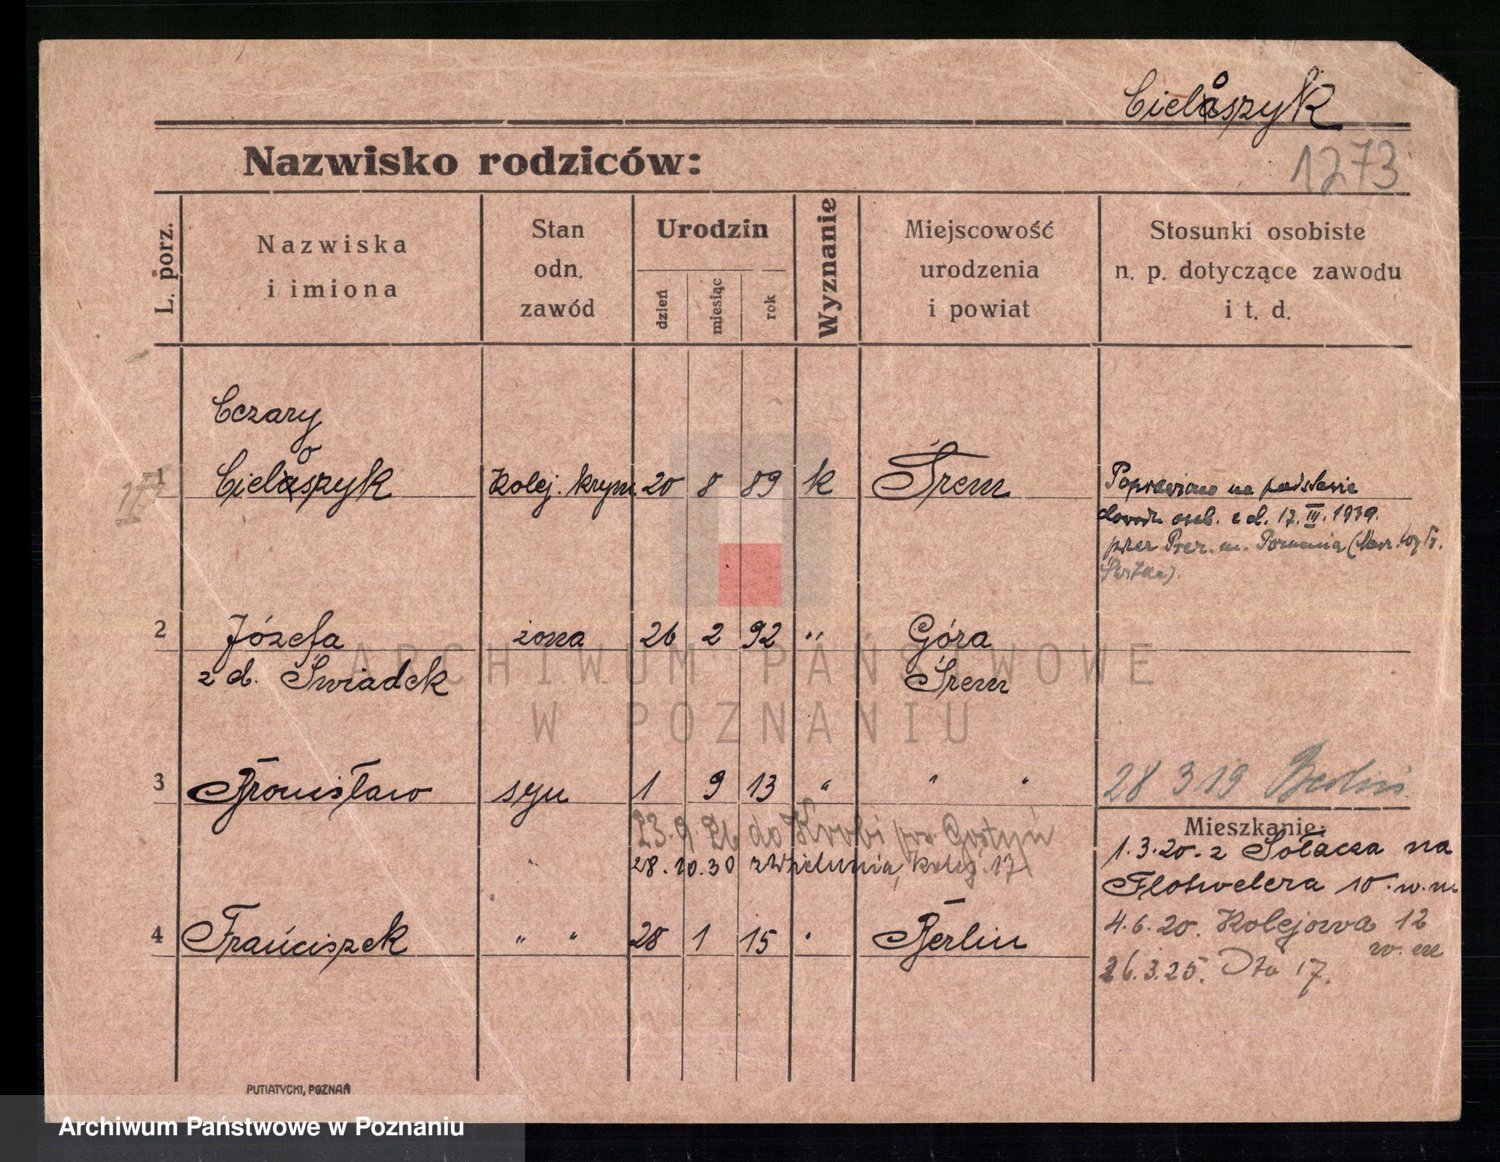 Cielaszyk
1273
Nazwisko rodziców:
L. porz.
Nazwiska
i imiona
Stan
odn.
zawód
Urodzin
dzień
miesiąc
rok
Wyznanie
Miejscowość
urodzenia
i powiat
Stosunki osobiste
n. p. dotyczące zawodu
i t. d.
Cezary
1 Cielaszyk Kolej. 20 8 89 k Śrem
Poprawiono na podstawie
dowodu osob. z d. 17.III.1939.
przez Prez. m. Poznania
2 Józefa żona 26 2 92 " Góra
z d. Świadek Śrem
3 Bronisław syn 1 9 13 " " "
28 3 19 Berlin
23.9.26 do Krobi pow. Gostyń
28.10.30 z Wielunia, Kolej. 17
Mieszkanie:
1.3.20. z Sołacza na
10. w. m.
4 Franciszek " " 28 1 15 " Berlin
4.6.20. Kolejowa 12
w. m
26.3.25. Dto 17.
PUTIATYCKI, POZNAŃ
ARCHIWUM PAŃSTWOWE
W POZNANIU
Archiwum Państwowe w Poznaniu